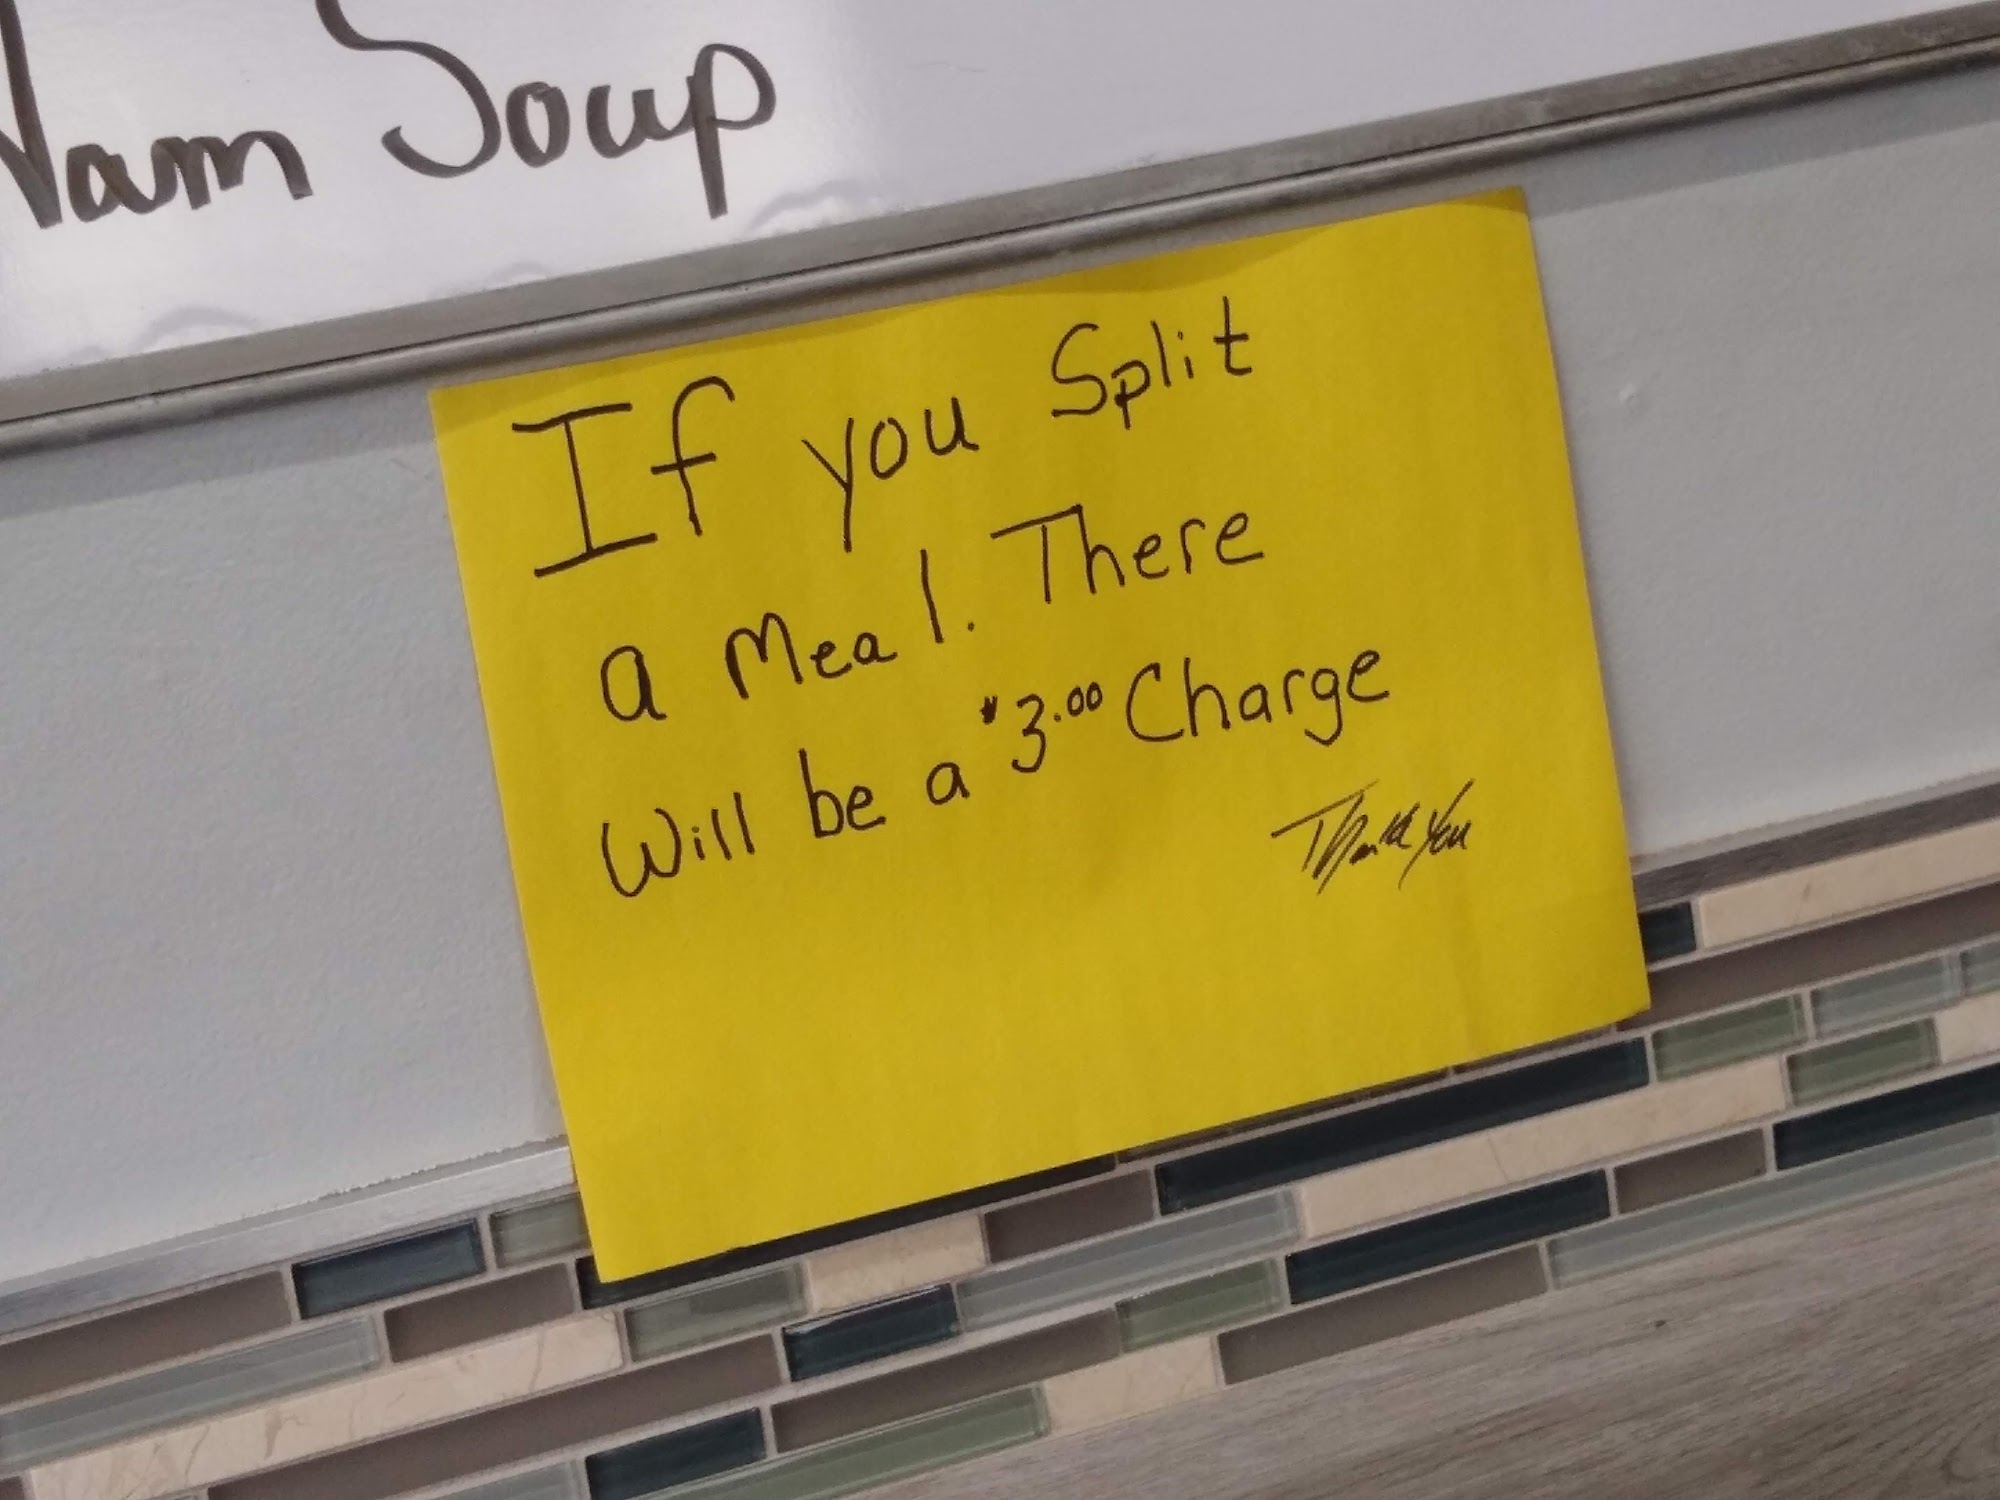 Ham Soup
If you Split
a meal. There
Will be a $3.00 Charge
Thank You